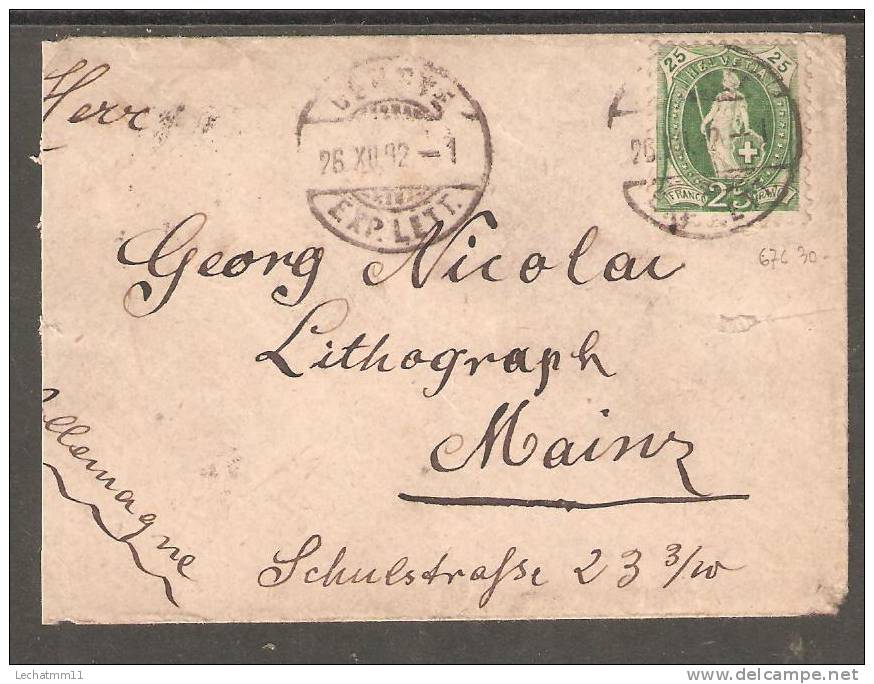 Herr
GENÈVE
26.XII.92-1
EXP. LETT.
25 HELVETIA 25
FRANCO 25 FRANCO
67C 30-
Georg Nicolai
Lithograph
Mainz
Allemagne
Schulstraſse 23 3/10
Lechatmm11
www.delcampe.net